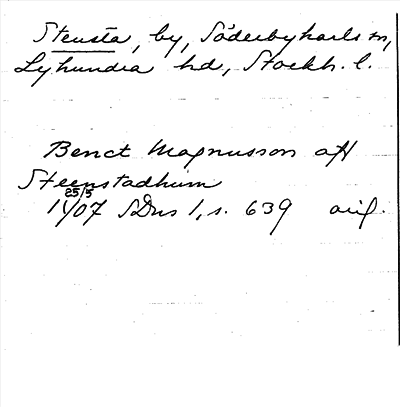 Stensta, by, Söderbykarls sn,
Lyhundra hd, Stockh. l.
Benct Magnusson aff
Steenstadhum
25/5
1407 SDns 1, s. 639 orig.